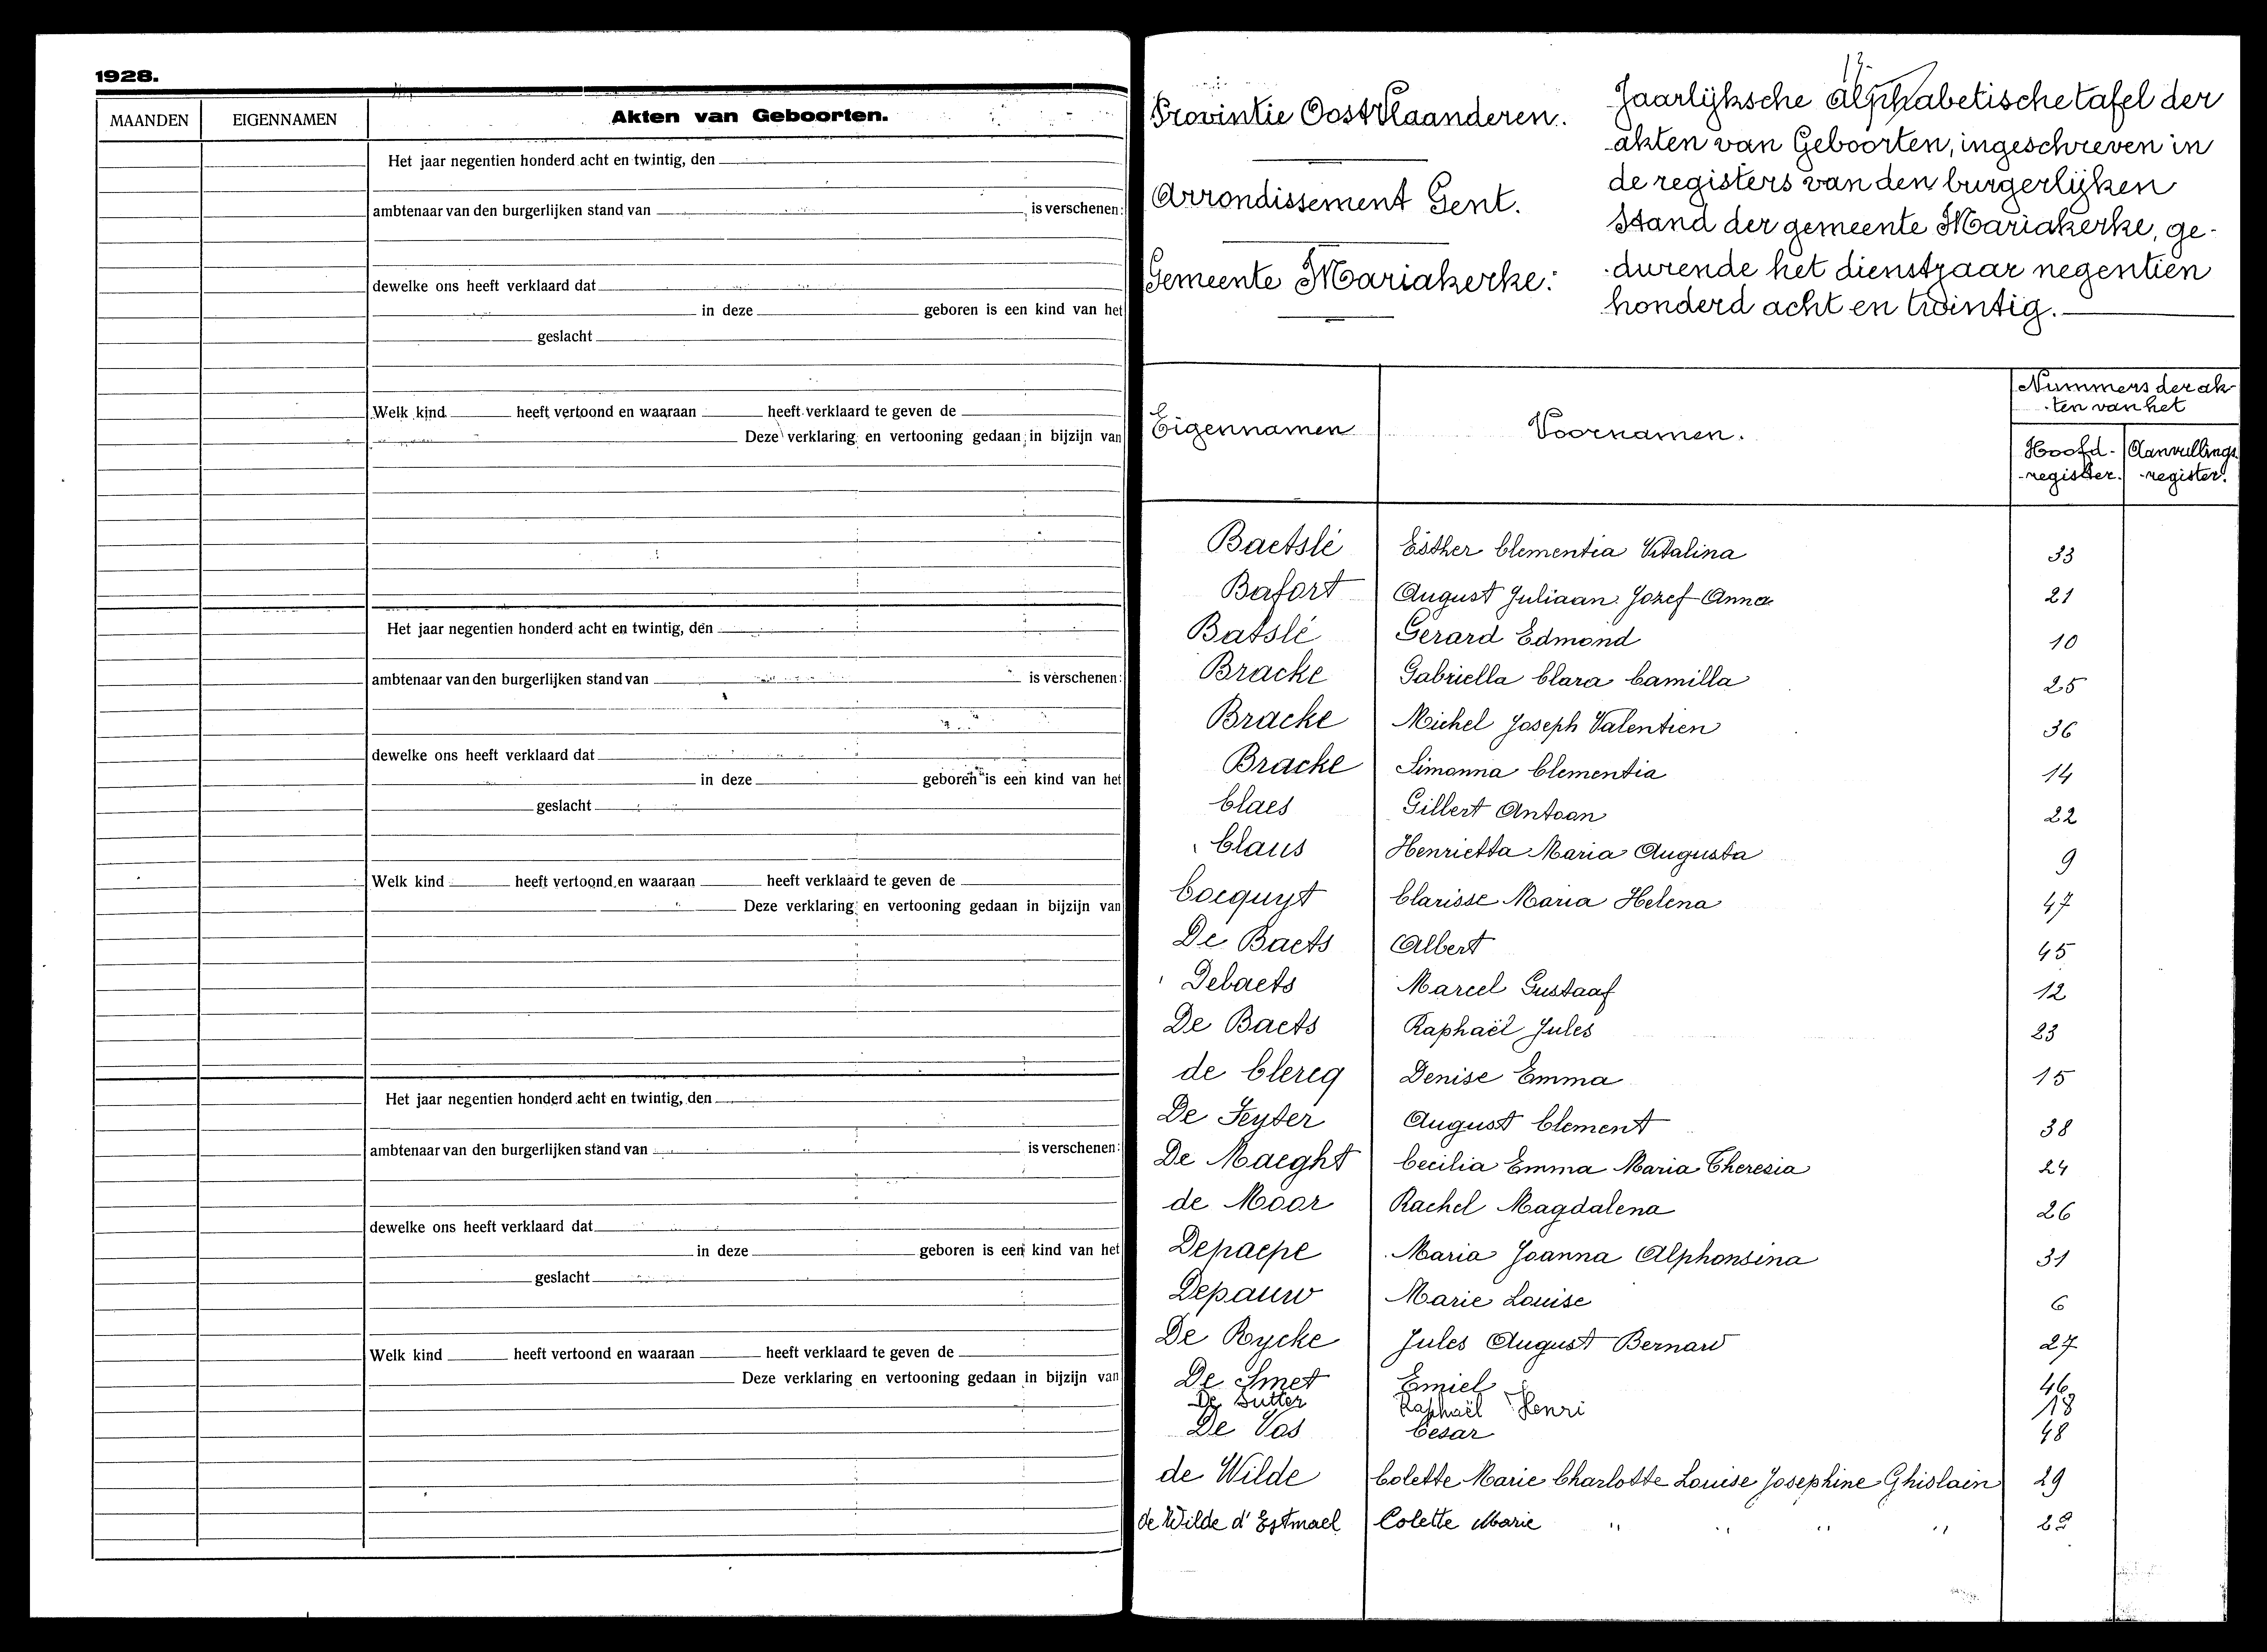 1928.
MAANDEN EIGENNAMEN Akten van Geboorten.
Het jaar negentien honderd acht en twintig, den
ambtenaar van den burgerlijken stand van is verschenen:
dewelke ons heeft verklaard dat
in deze geboren is een kind van het
geslacht
Welk kind heeft vertoond en waaraan heeft verklaard te geven de
Deze verklaring en vertooning gedaan in bijzijn van
Het jaar negentien honderd acht en twintig, den
ambtenaar van den burgerlijken stand van is verschenen:
dewelke ons heeft verklaard dat
in deze geboren is een kind van het
geslacht
Welk kind heeft vertoond en waaraan heeft verklaard te geven de
Deze verklaring en vertooning gedaan in bijzijn van
Het jaar negentien honderd acht en twintig, den
ambtenaar van den burgerlijken stand van is verschenen:
dewelke ons heeft verklaard dat
in deze geboren is een kind van het
geslacht
Welk kind heeft vertoond en waaraan heeft verklaard te geven de
Deze verklaring en vertooning gedaan in bijzijn van
Provintie Oost Vlaanderen.
Arrondissement Gent.
Gemeente Mariakerke:
Jaarlijksche alphabetische tafel der
akten van Geboorten, ingeschreven in
de registers van den burgerlijken
stand der gemeente Mariakerke, ge-
durende het dienstjaar negentien
honderd acht en twintig.
Eigennamen Voornamen. Nummers der ak-
ten van het
Hoofd- Aanvullings
register. register.
Baetslé Esther Clementia Vitalina 33
Bafort August Juliaan Jozef Anna 21
Batslé Gerard Edmond 10
Bracke Gabriella Clara Camilla 25
Bracke Michel Joseph Valentien 36
Bracke Simonna Clementia 14
Claes Gilbert Antoon 22
Claus Henrietta Maria Augusta 9
Cocquyt Clarisse Maria Helena 47
De Baets Albert 45
Debaets Marcel Gustaaf 12
De Baets Raphaël Jules 23
de Clercq Denise Emma 15
De Feyter August Clement 38
De Maeght Cecilia Emma Maria Theresia 24
de Moor Rachel Magdalena 26
Depaepe Maria Joanna Alphonsina 31
Depauw Marie Louise 6
De Rycke Jules August Bernard 27
De Smet Emiel 46
De Sutter Raphaël Henri 18
De Vos Cesar 48
de Wilde Colette Marie Charlotte Louise Josephine Ghislain 29
de Wilde d'Estmael Colette Marie " " " " 29